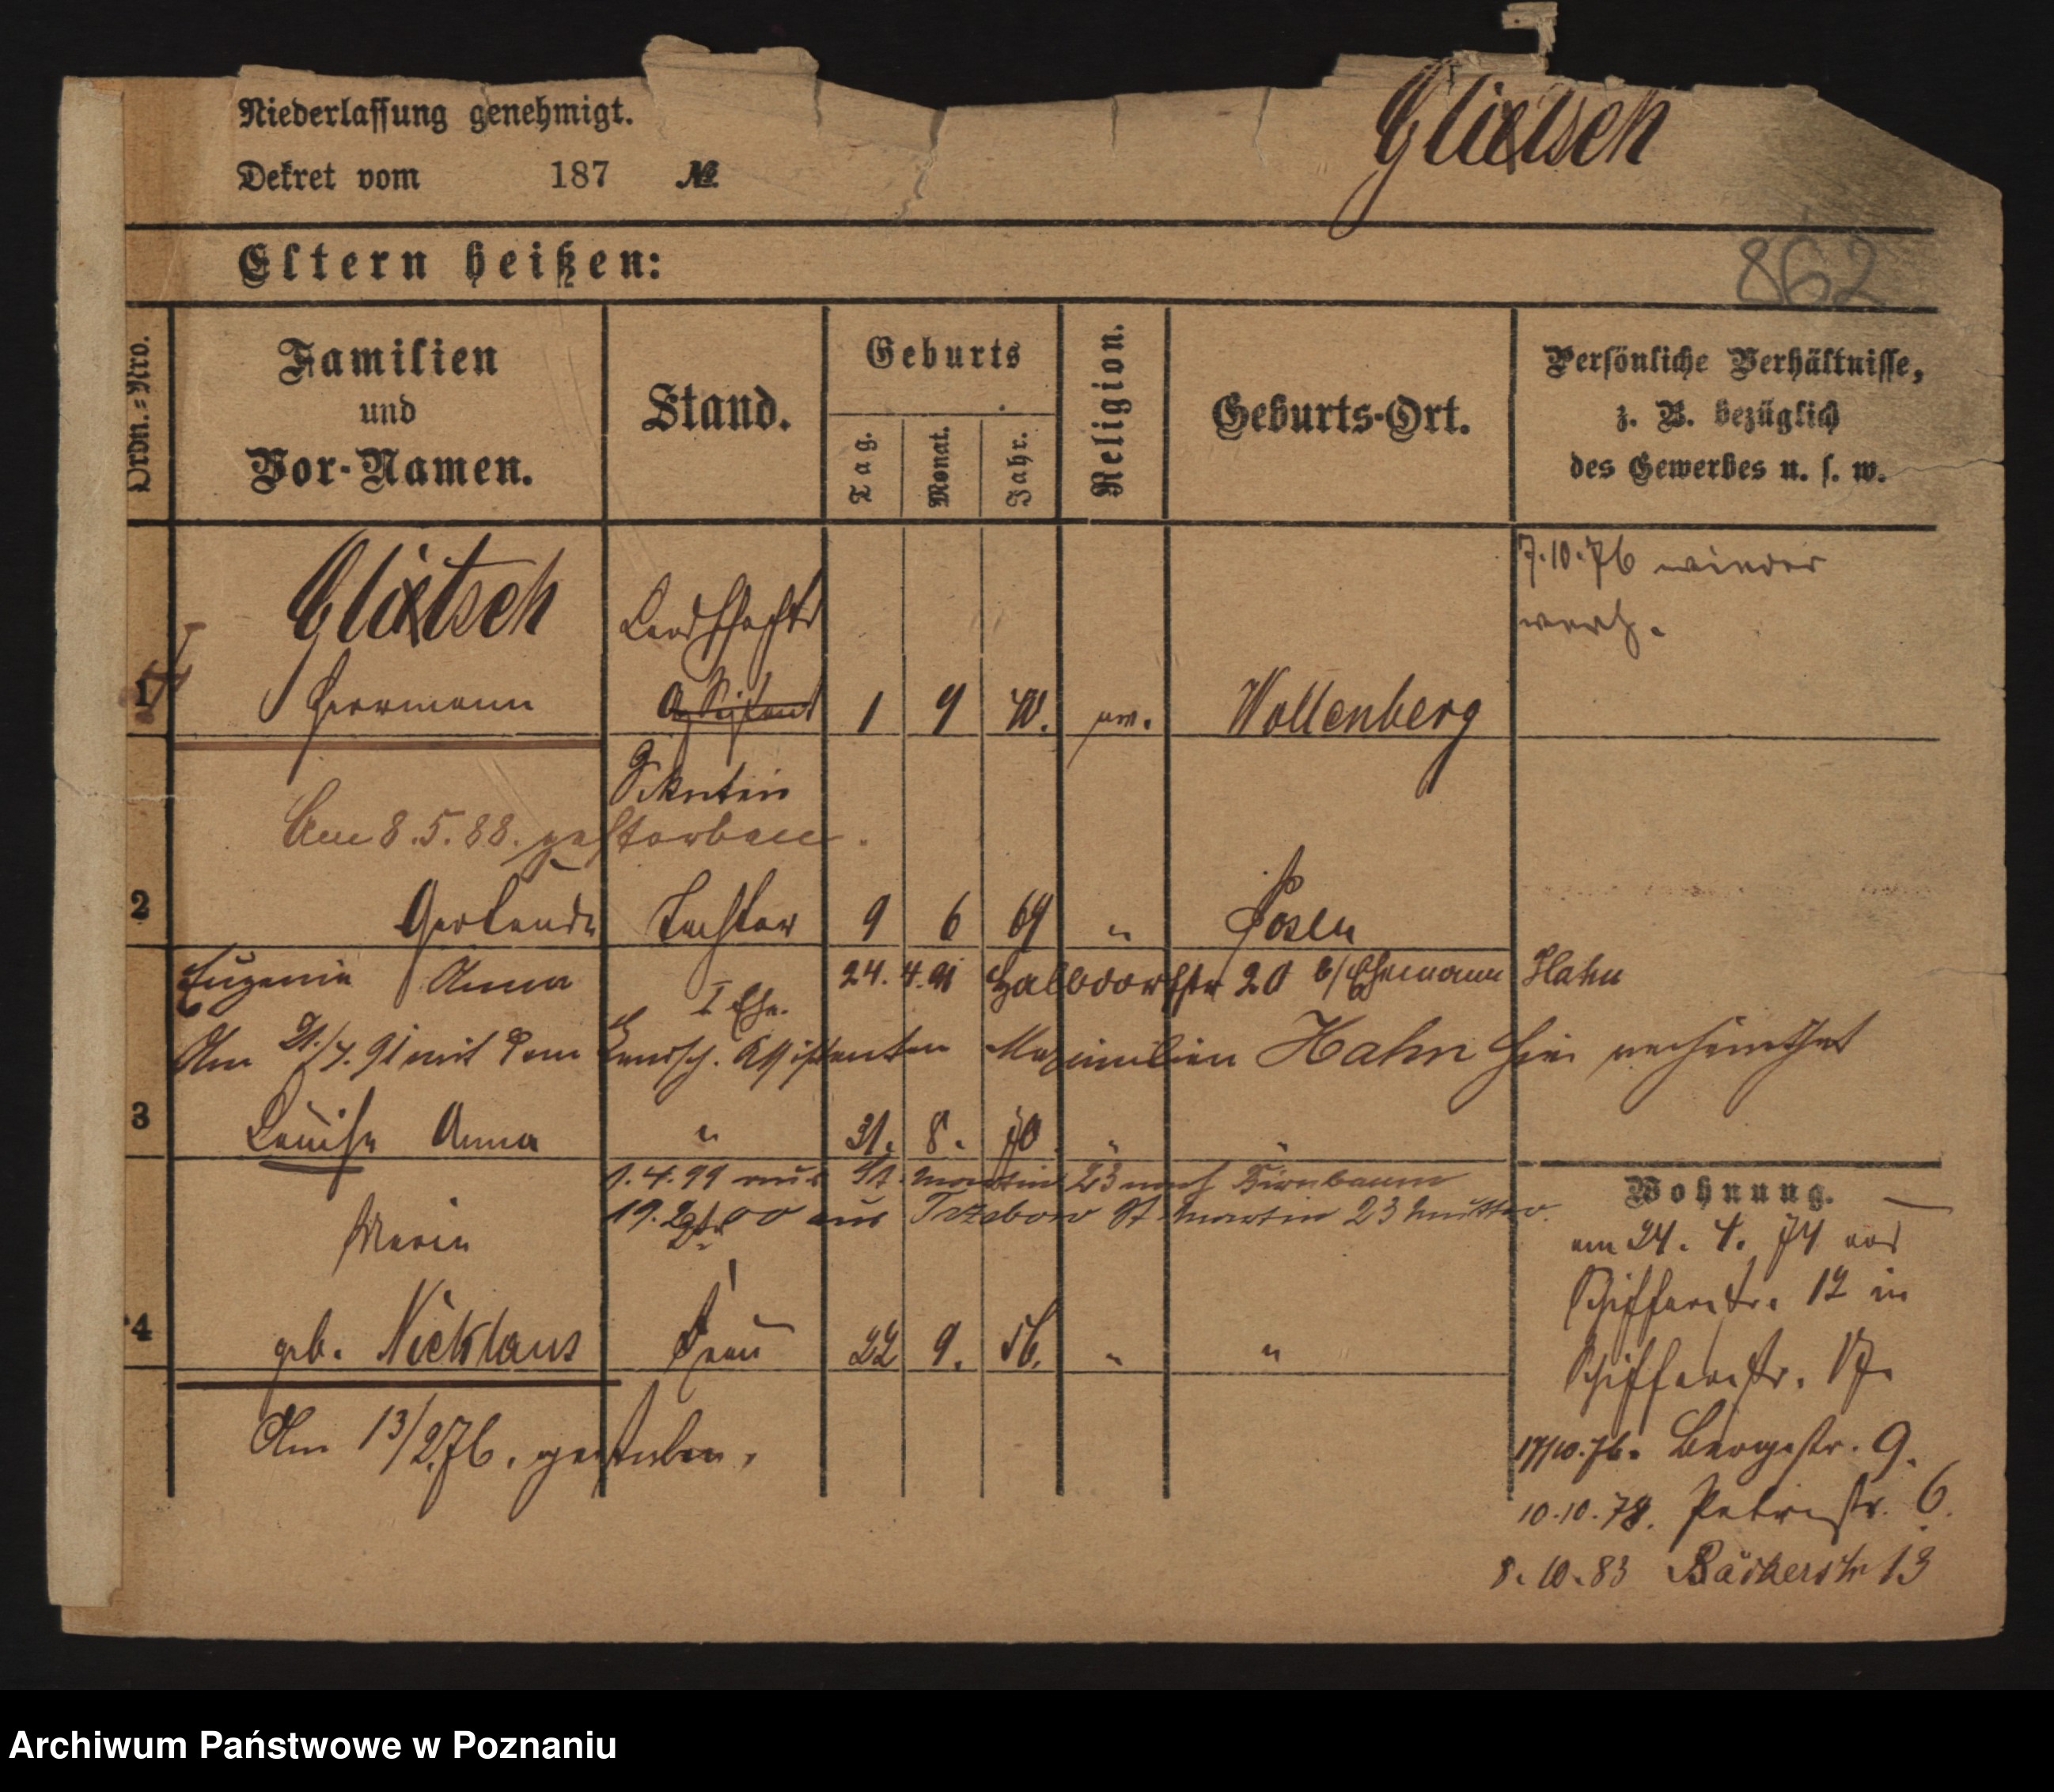 Niederlassung genehmigt.
Dekret vom 187 No.
Glietsch
Eltern heißen:
862
Ordn.=Nro.
Familien
und
Vor-Namen.
Stand.
Geburts
Tag.
Monat.
Jahr.
Religion.
Geburts-Ort.
Persönliche Verhältnisse,
z. B. bezüglich
des Gewerbes u. s. w.
7.10.76 wieder
verh.
Glietsch
Landschafts
1 Herrmann Assistent 1 9 ev. Wollenberg
Am 8.5.88. gestorben.
2 Tochter 9 6 69 " Posen
Eugenie Anna 24.4.91 Halbdorfstr 20 b/Ehemann Hahn
I Ehe.
Am 21/4.91 mit dem Landsch. Assistenten Maximilian Hahn hier verheirathet
3 Louise Anna " 31. 8. 70 " "
1.4.99 aus St. Martin 23 nach Birnbaum
19. 00 aus St. Martin 23 Mutter.
Wohnung.
Marie
am 24. 4. 74 aus
Schifferstr. 12 in
4 geb. Nicklaus Frau 22 9. 56. " "
Schifferstr. 17.
Am 13/2.76. gestorben.
17/10.76. Bergstr. 9.
10.10.78. Petristr. 6.
8.10.83 Bäckerstr 13
Archiwum Państwowe w Poznaniu